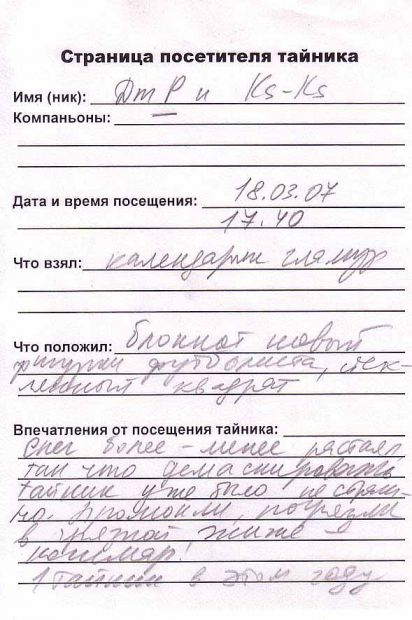 Страница посетителя тайника
Имя (ник): ДтР и Ks-Ks
Компаньоны: —
Дата и время посещения: 18.03.07
17.40
Что взял: календарик гламур
Что положил: блокнот новый
фигурки футболиста, стек-
лянный квадрат
Впечатления от посещения тайника:
Снег более-менее растаял
так что демаскировать
тайник уже было не страш-
но. Промокли, погрязли
в грязной жиже -
кошмар!
1 тайник в этом году